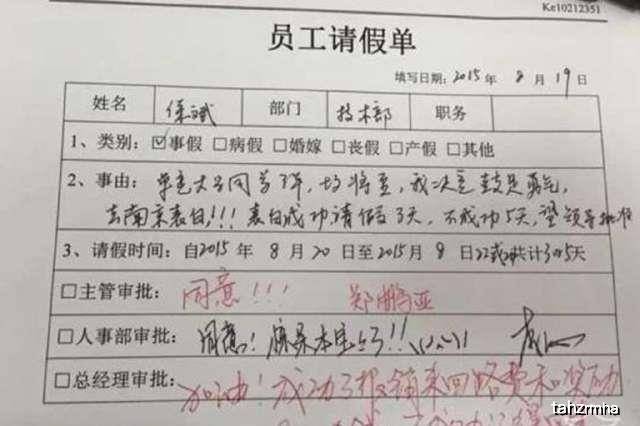 Ke10212351
员工请假单
填写日期：2015 年 8 月 19 日
姓名 保斌 部门 技术部 职务
1、类别：☑事假 □病假 □婚嫁 □丧假 □产假 □其他
2、事由： 我决定鼓足勇气，
去南京表白!!! 表白成功请假3天，不成功5天，望领导批准
3、请假时间：自2015 年 8 月 20 日至2015 月 8 日22或 共计3或5天
□主管审批： 同意!!! 郑鹏亚
□人事部审批： 同意!
□总经理审批： 加油! 成功了报销来回路费和奖励
tahzrmha